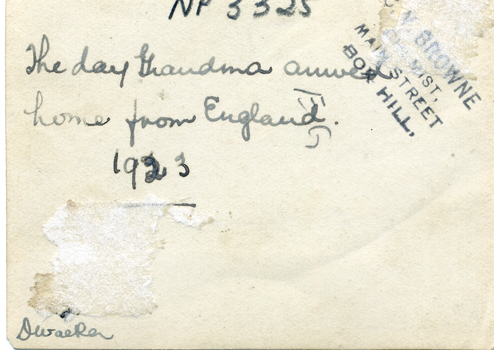 NP 3325
The day Grandma arrived
home from England.
1923
N BROWNE
MAIN STREET
BOX HILL,
Dwacker